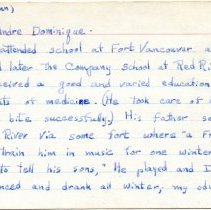 an)
andre Dominique.
attended school at Fort Vancouver a
d later The Company school at Red Ri
ceived a good and varied education
ts of medicine. (He took care of
bite successfully.) His father se
River via some fort where "a F
train him in music for one winter
to tell his sons," He played and I
nced and drank all winter, my